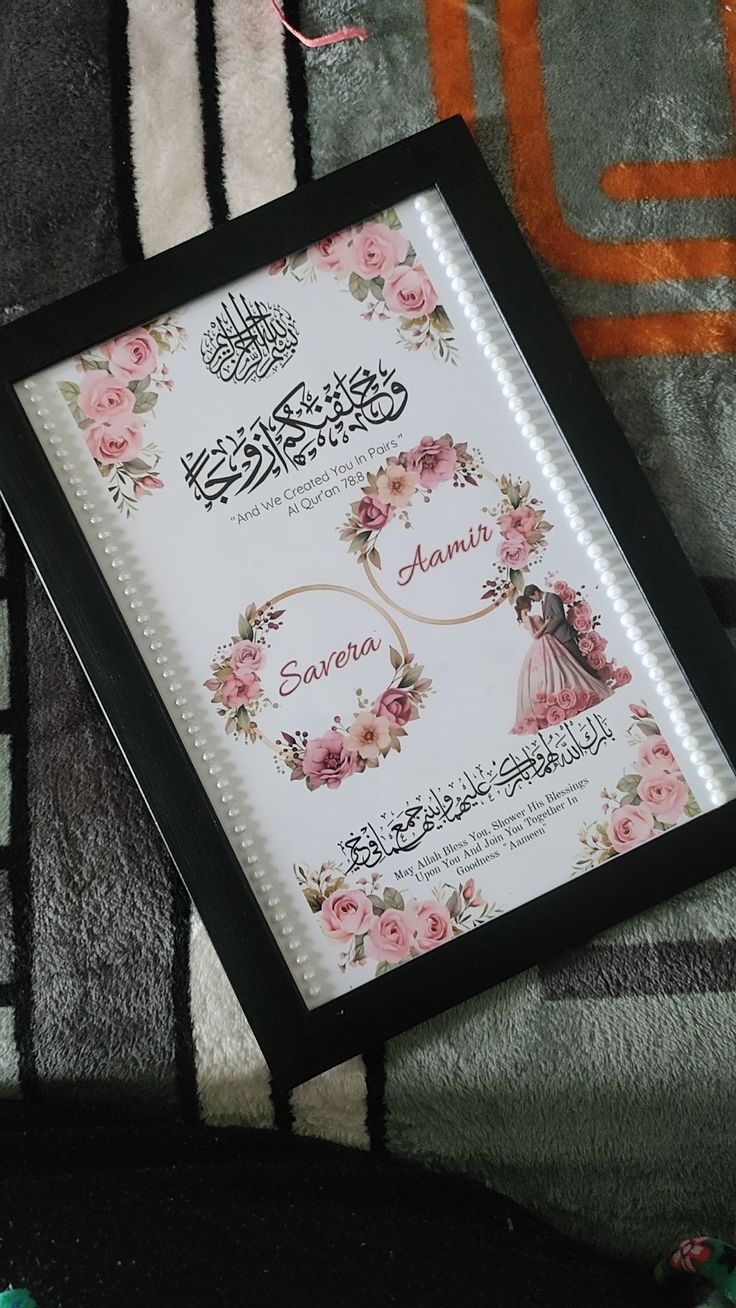 بسم الله الرحمن الرحيم
وخلقنكم ازوجا
"And We Created You In Pairs"
Al Qur'an 78:8
Aamir
Savera
بارك الله لهما وبارك عليهما وجمع بينهما في خير
May Allah Bless You, Shower His Blessings
Upon You And Join You Together In
Goodness "Aameen"